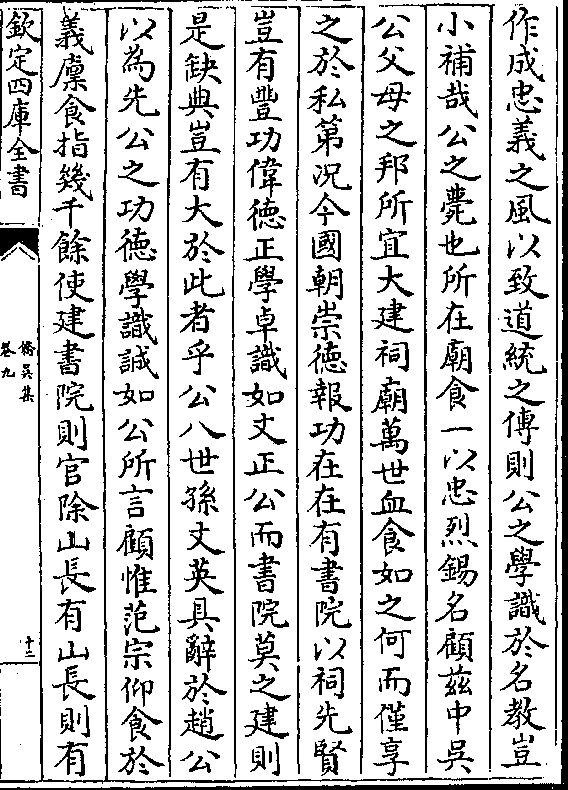 作成忠義之風以致道統之傳則公之學識於名教豈
小補哉公之薨也所在廟食一以忠烈錫名顧兹中吳
公父母之邦所宜大建祠廟萬世血食如之何而僅享
之於私第况今國朝崇德報功在在有書院以祠先賢
豈有豐功偉德正學卓識如文正公而書院莫之建則
是缺典豈有大於此者乎公八世孫文英具辭於趙公
以為先公之功德學識誠如公所言顧惟范宗仰食於
義廪食指幾千餘使建書院則官除山長有山長則有
欽定四庫全書
僑吳集
卷九
十三